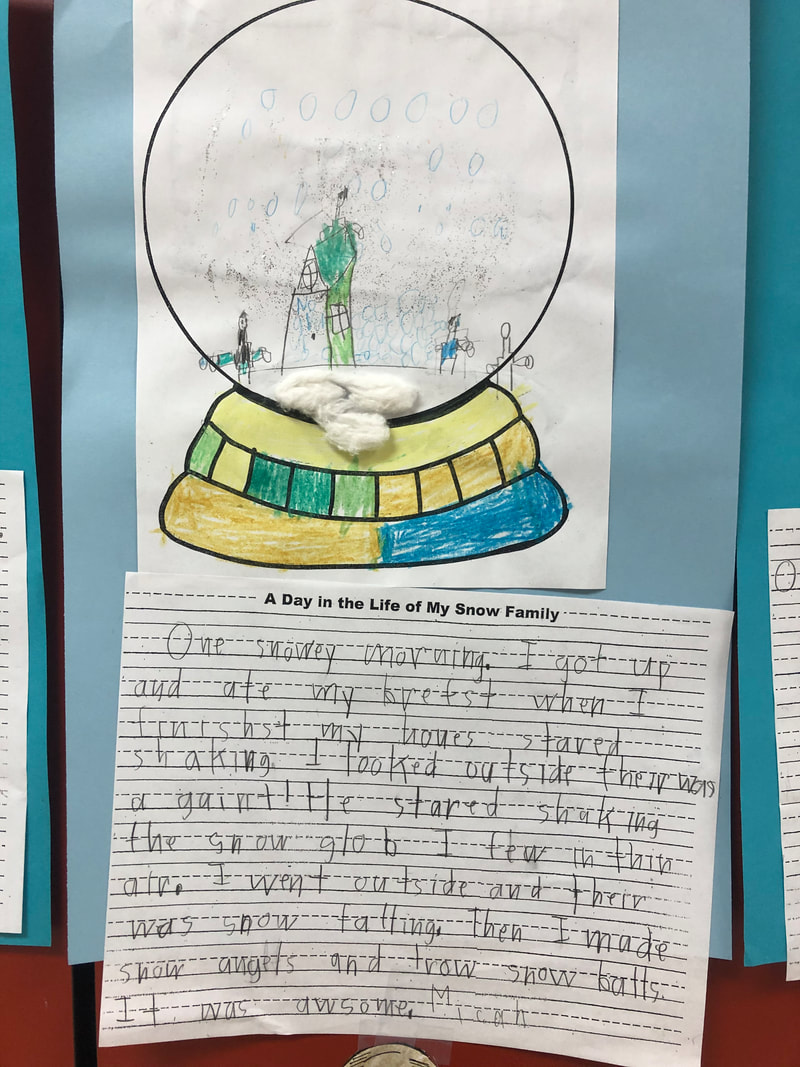 A Day in the Life of My Snow Family
One snowey morning. I got up
and ate my brefst when I
finishst my houes stared
shaking I looked outside their was
a gaint! He stared shaking
the snow glob I few in thin
air. I went outside and their
was snow falling. Then I made
snow angels and trow snow balls.
It was awsome. Micah